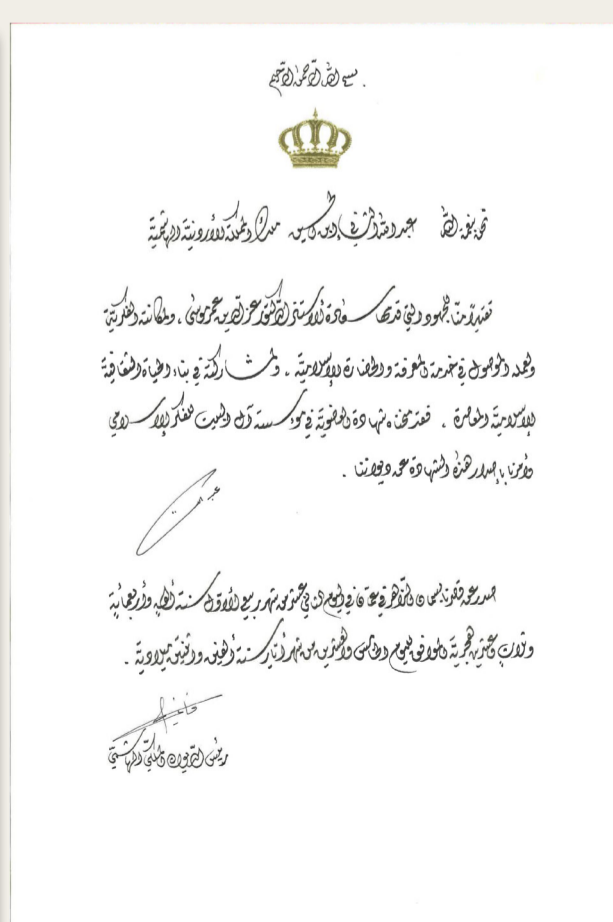 بسم الله الرحمن الرحيم
نحن بنعمة الله عبد الله الثاني ابن الحسين ملك المملكة الأردنية الهاشمية
تقديراً منا للجهود التي قدمها سعادة الأستاذ الدكتور عز الدين عمر موسى ، ولمكانته الفكرية
ولعمله الموصول في خدمة المعرفة والحضارة الإسلامية ، ولمشاركته في بناء الحياة الثقافية
الإسلامية المعاصرة ، فقد منحناه شهادة العضوية في مؤسسة آل البيت للفكر الإسلامي
وأمرنا بإصدار هذه الشهادة عن ديواننا .
صدر عن قصرنا بسمان الزاهر في عمّان في اليوم الثاني عشر من شهر ربيع الأول سنة ألف وأربعماية
وثلاث وعشرين هجرية الموافق لليوم الخامس والعشرين من شهر أيار سنة ألفين واثنتين ميلادية .
رئيس الديوان الملكي الهاشمي